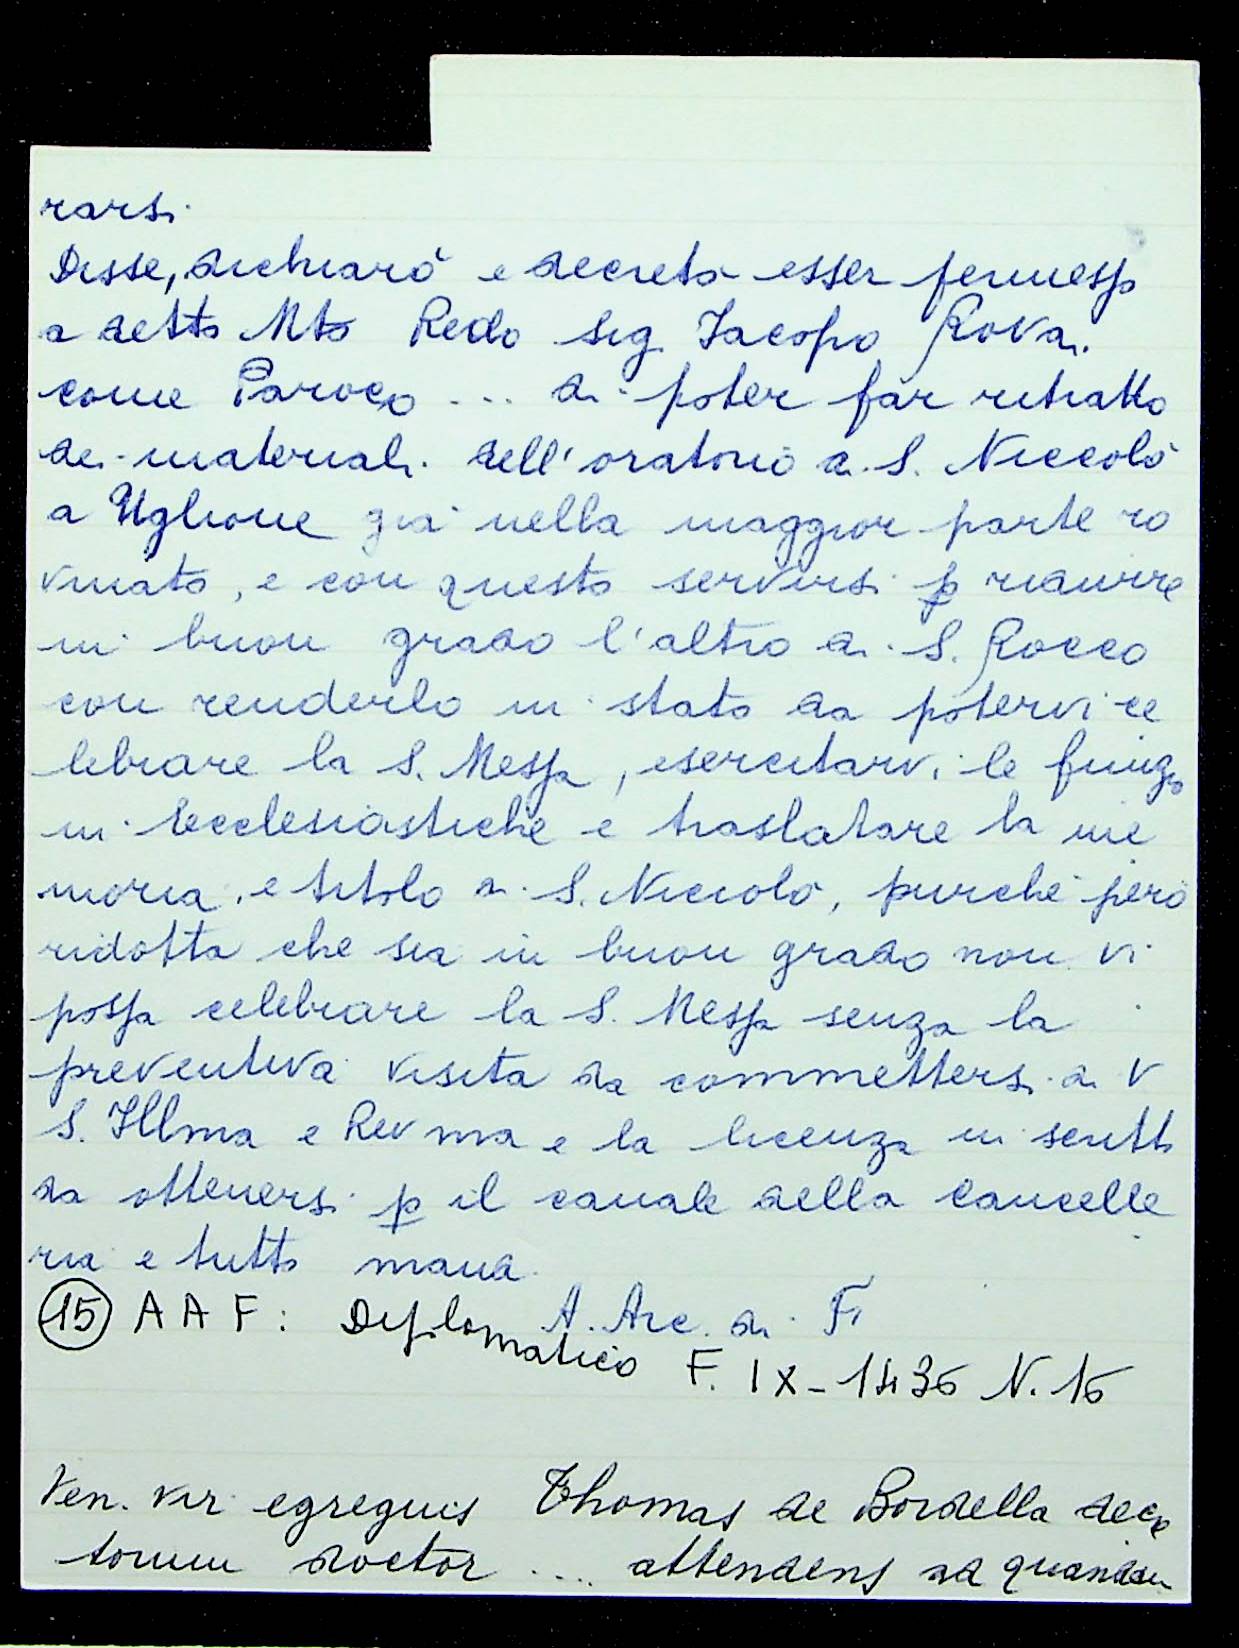 rarsi.
Disse, dichiarò e decretò esser permesso
a detto Mto Redo sig. Jacopo Rovai
come Paroco ... di poter far ritratto
dei materiali dell'oratorio di S. Niccolò
a Uglione già nella maggior parte ro
vinato, e con questo servirsi p ridurre
in buon grado l'altro di S. Rocco
con renderlo in stato da potervi ce
lebrare la S. Messa, esercitarvi le funzio
ni Ecclesiastiche e traslatare la me
moria, e titolo di S. Niccolò, purchè però
ridotta che sia in buon grado non vi
possa celebrare la S. Messa senza la
preventiva visita da commettersi da V
S. Illma e Revma e la licenza in scritto
da ottenersi p il canale della Cancelle
ria e tutto
15 A A F: Diplomatico A. Arc. di Fi
F. IX - 1436 N. 16
Ven. vir egregius Thomas de Bordella decre
torum doctor .... attendens ad quandam